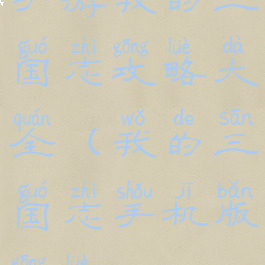 游我的三
guó zhì gōng lüè dà
国志攻略大
quán wǒ de sān
全（我的三
guó zhì shǒu jī bǎn
国志手机版
gōng lüè